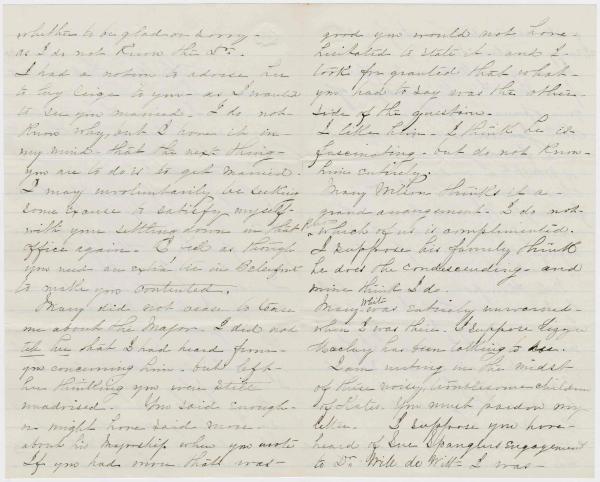 whether to be glad or sorry-
as I do not know the Dr.
I had a notion to advise her
to lay siege to you - as I would
to see you married. I do not
know why, but I have it in
my mind - that the next thing -
you are to do is to get married.
I may involuntarily be seeking
some excuse to satisfy myself -
with your settling down in that
office again. I feel as though
you need an extra tie in Bellefonte
to make you contented.
Mary did not cease to tease
me about the Major. I did not
tell her that I had heard from -
you concerning him - but left -
her thinking you were still
unadvised. You said enough -
or might have said more -
about his Majorship when you wrote
If you had more that was -
good you would not have -
hesitated to state it - and I -
took for granted that what -
you had to say was the other -
side of the question.
I like him - I think he is
fascinating - but do not know -
him entirely.
Mary Wilson thinks it a -
grand arrangement - I do not -
which of us is complimented.
I suppose his family think
he does the condescending - and
mine think I do.
Mary White was entirely unwarned -
when I was there. I suppose Lizzie
Maclay has been talking to her.
I am writing in the midst
of three noisy, troublesome children
of Kates. You must pardon my
letter. I suppose you have -
heard of Sue Spanglers Engagement
to Dr. Will de Witt - I was -